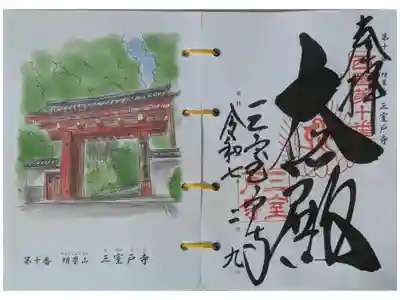 第十 明星 三室戸寺
奉拝
西国第十番
大悲殿
三室戸寺
令和七、二、九
第十番 明星山 三室戸寺